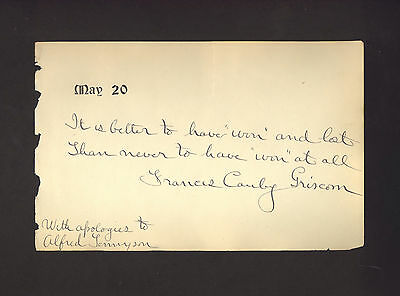 May 20
It is better to have "won" and lost
Than never to have "won" at all
Francis Canby Griscom
With apologies to
Alfred Tennyson